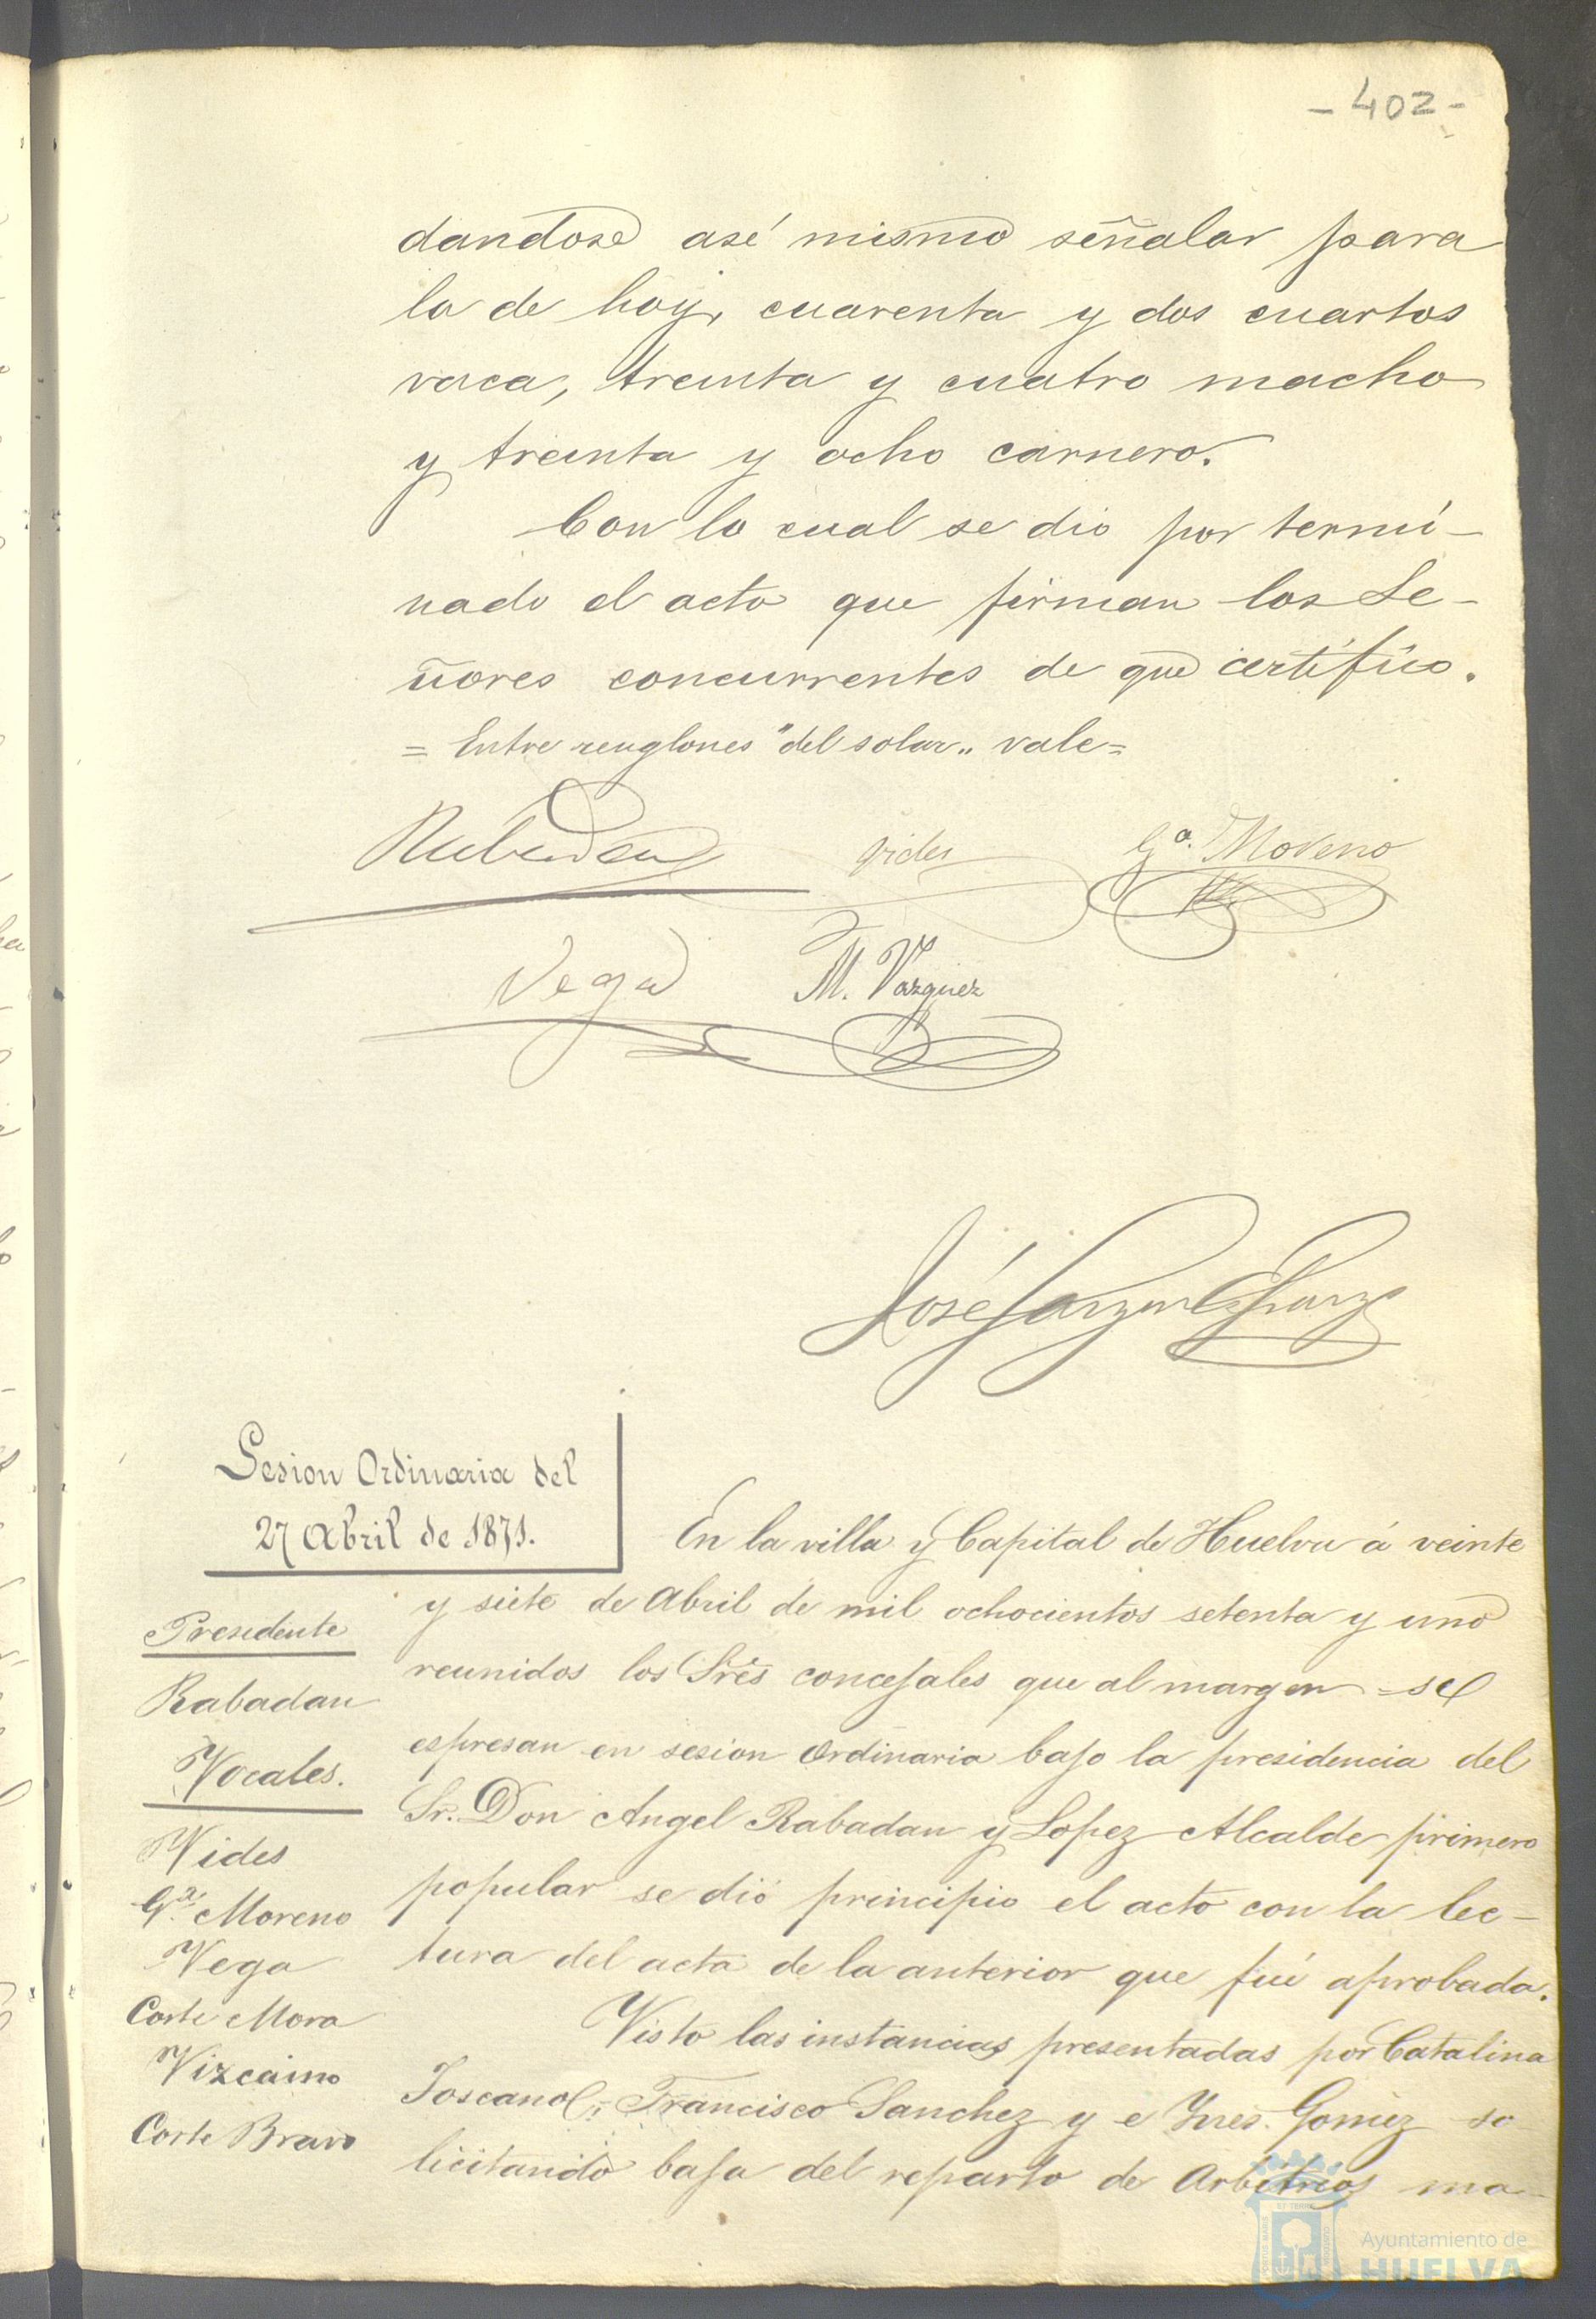 - 402 -
dandose asé mismo señalar para
la de hoy, cuarenta y dos cuartos
vaca, treinta y cuatro macho
y treinta y ocho carnero.
Con lo cual se dio por termi-
nado el acto que firman los Se-
ñores concurrentes de que certifico.
= Entre renglones "del solar" vale=
Rabadan Vides Ga. Moreno
Vega M. Vazquez
José
Sesion Ordinaria del
27 Abril de 1871.
En la villa y Capital de Huelva á veinte
y siete de Abril de mil ochocientos setenta y uno
reunidos los Sres concejales que al margen se
espresan en sesion ordinaria bajo la presidencia del
Sr. Don Angel Rabadan y Lopez Alcalde primero
popular se dió principio el acto con la lec-
tura del acta de la anterior que fué aprobada.
Visto las instancias presentadas por Catalina
Toscano, Francisco Sanchez y e Ynes Gomez so
licitando baja del reparto de Arbitrios ma-
Presidente
Rabadan
Vocales.
Vides
Ga. Moreno
Vega
Corte Mora
Vizcaino
Corte Bravo
Ayuntamiento de
HUELVA